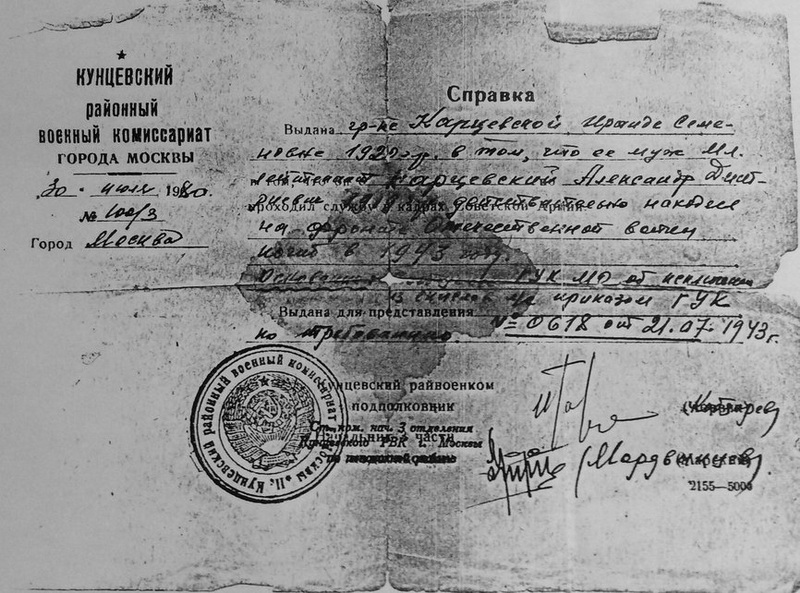 КУНЦЕВСКИЙ
районный
военный комиссариат
ГОРОДА МОСКВЫ
"30" июля 1980
№ 100/3
Город Москва
Справка
Выдана гр-ке Карцевской Ираиде Семе-
новне в том, что ее муж Мл.
лейтенант Карцевский Александр Дмит-
риевич проходил службу в кадрах Советской Армии действительно находился
на фронте Отечественной войны
погиб в 1943 году.
Основание ГУК МО об исключении
из списков приказом ГУК
Выдана для представления № 0618 от 21.07.1943г.
по требованию
Кунцевский райвоенком
подполковник
Ст. пом. нач. 3 отделения
Кунцевского РВК г. Москвы
Начальник части
Кунцевский районный военный комиссариат г. Москвы
2155—5000